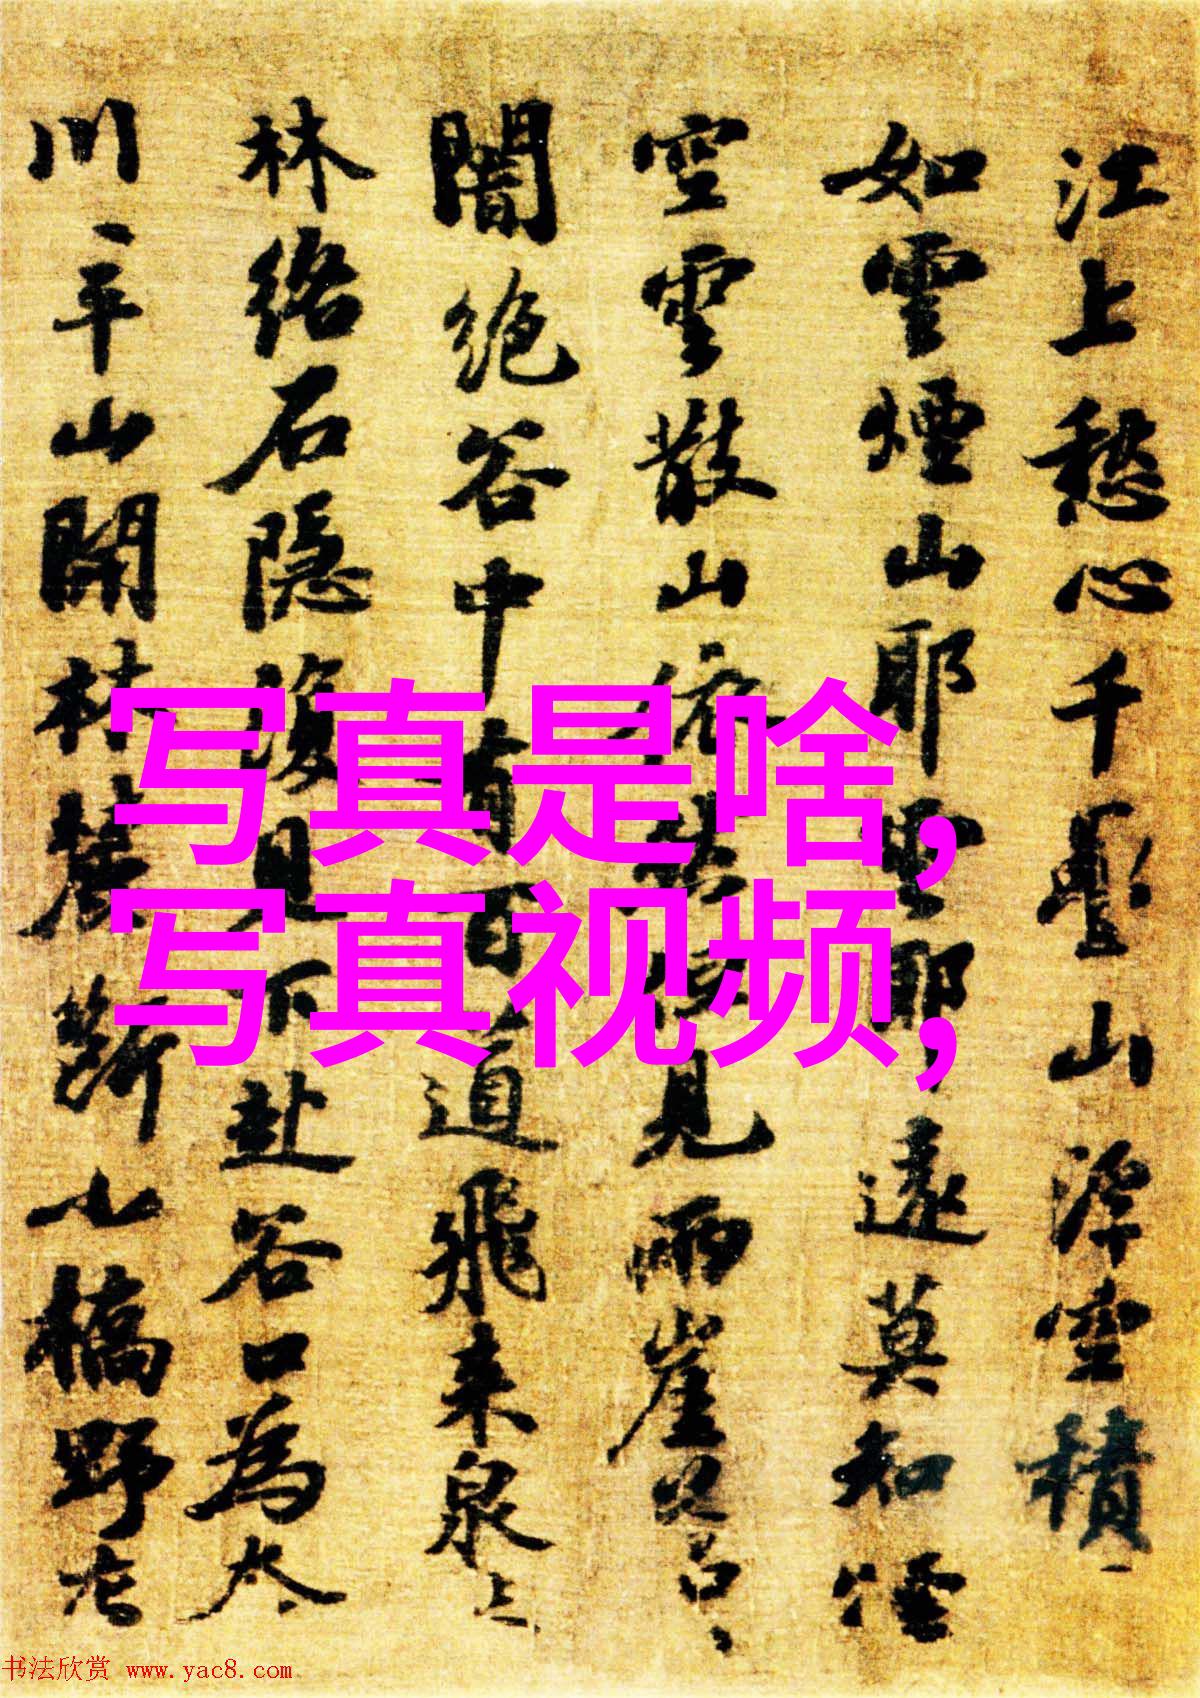 江上愁心千疊山浮空積
如雲煙山耶雲耶遠莫知煙
空雲散山依然但見兩崖
闇絕谷中有百道飛來泉
林絡石隱復見下赴谷口為
川平山開林麓斷小橋野
写真是啥,
写真视频,
书法欣赏 www.yac8.com